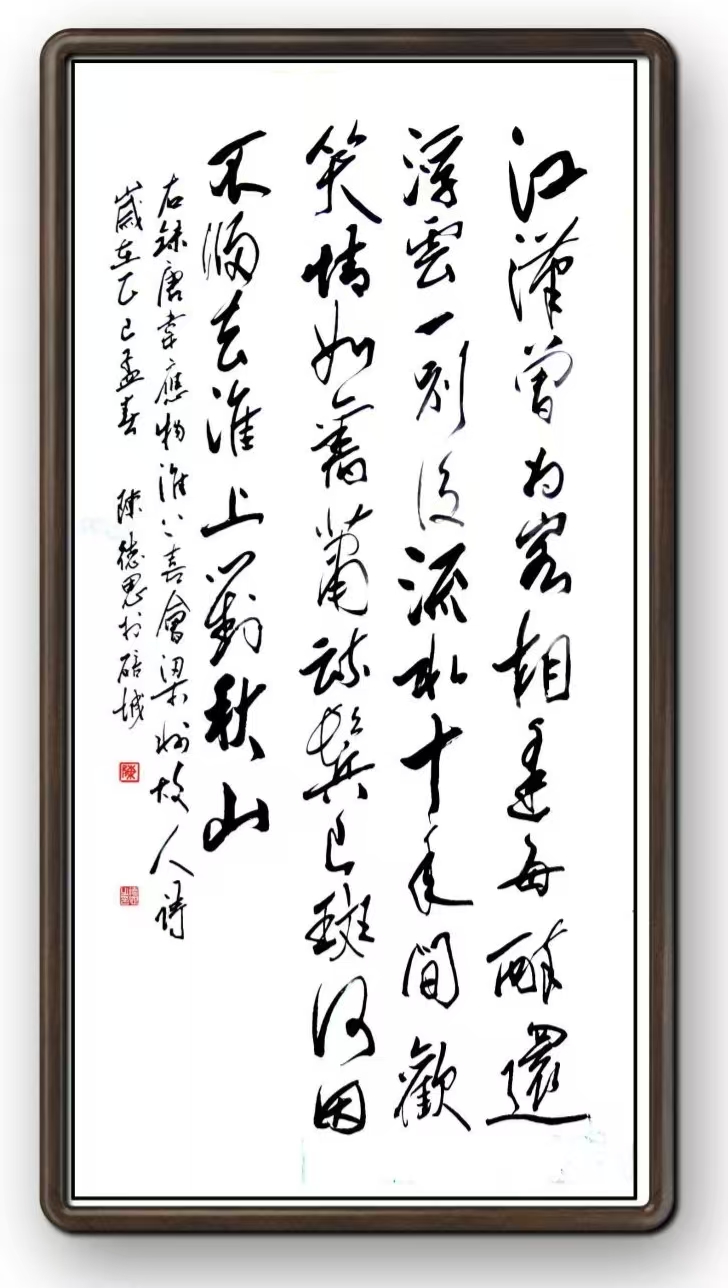 江漢曾為客相逢每醉還
浮雲一別後流水十年間歡
笑情如舊蕭疏鬢已斑何因
不歸去淮上對秋山
右錄唐韋應物淮上喜會梁州故人詩
歲在乙巳孟春 陳德思於碚城